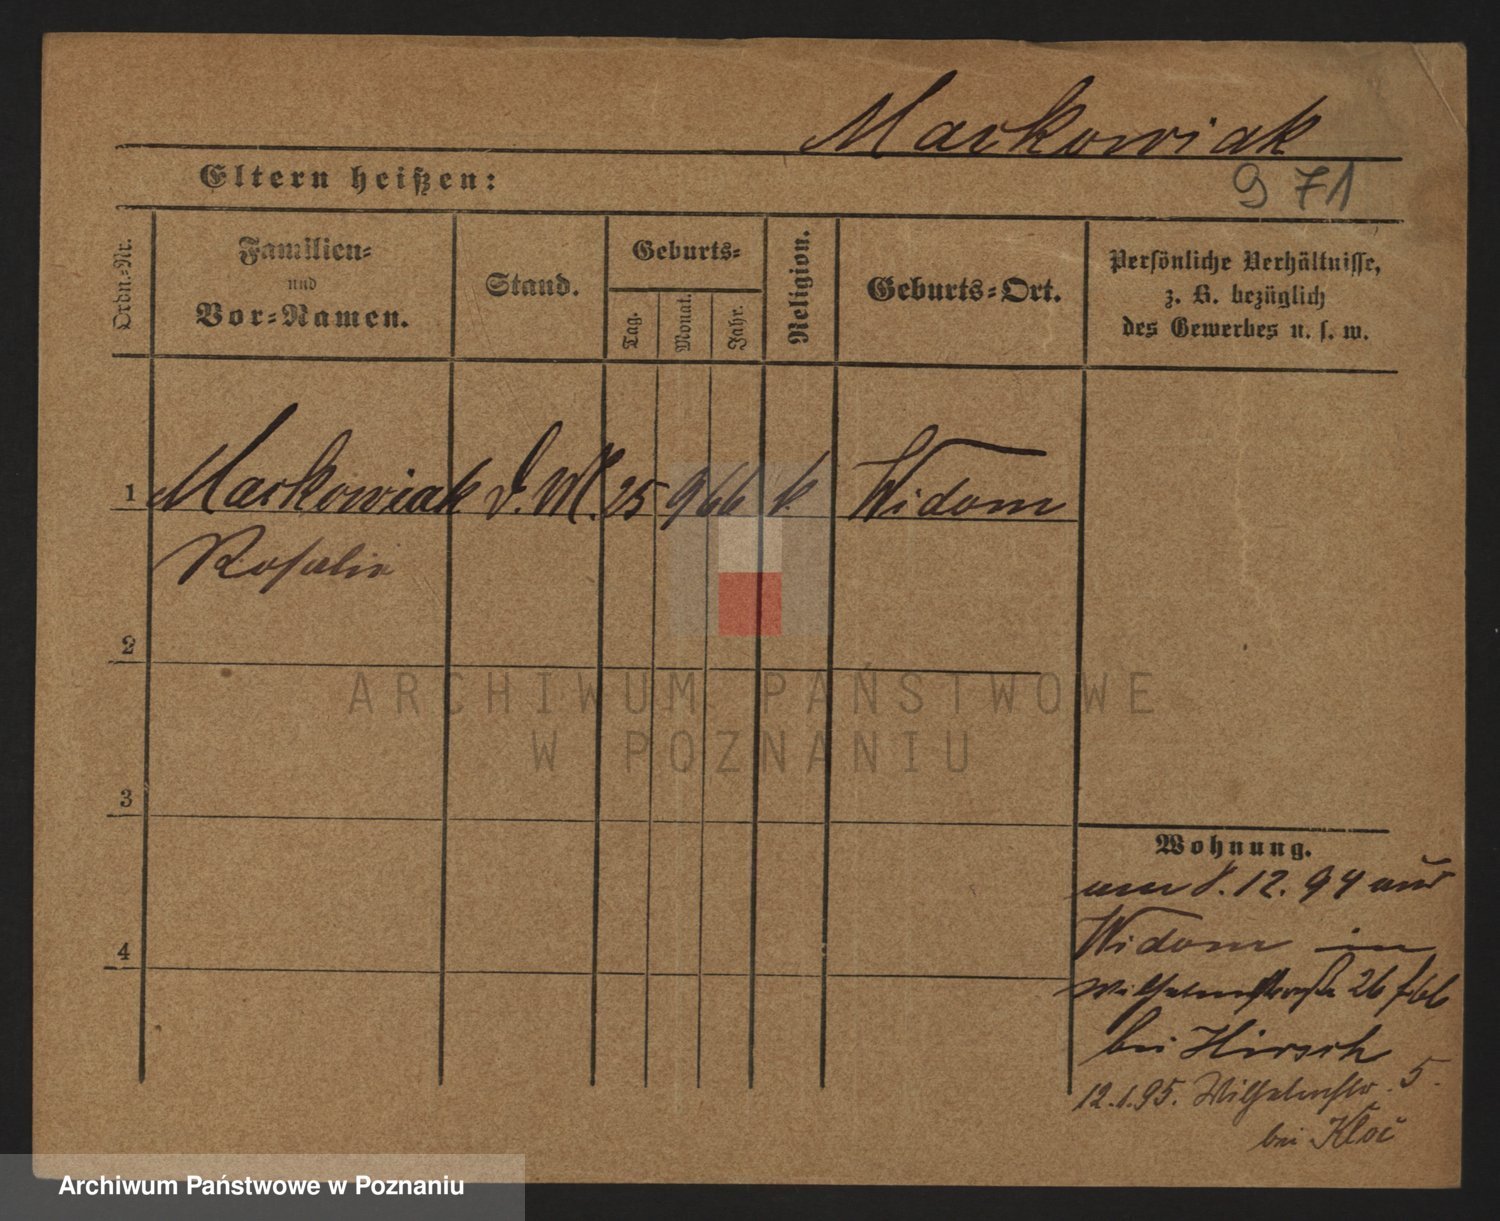 Markowiak
971
Eltern heißen:
Ordn.-Nr.
Familien-
und
Vor-Namen.
Stand.
Geburts-
Tag.
Monat.
Jahr.
Religion.
Geburts-Ort.
Persönliche Verhältnisse,
z. B. bezüglich
des Gewerbes u. s. w.
1 Markowiak D. M. 25 9 66 k. Widom
Rosalie
2
3
4
Wohnung.
am 8.12.94 aus
Widom in
Wilhelmstraße 26
bei Hirsch
12.1.95. Wilhelmstr. 5.
bei
ARCHIWUM PAŃSTWOWE
W POZNANIU
Archiwum Państwowe w Poznaniu